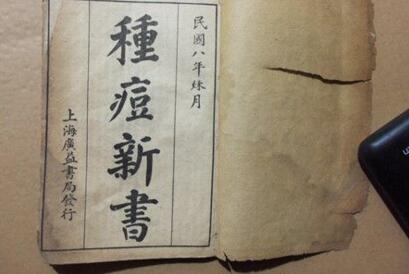 民國八年秌月
種痘新書
上海廣益書局發行